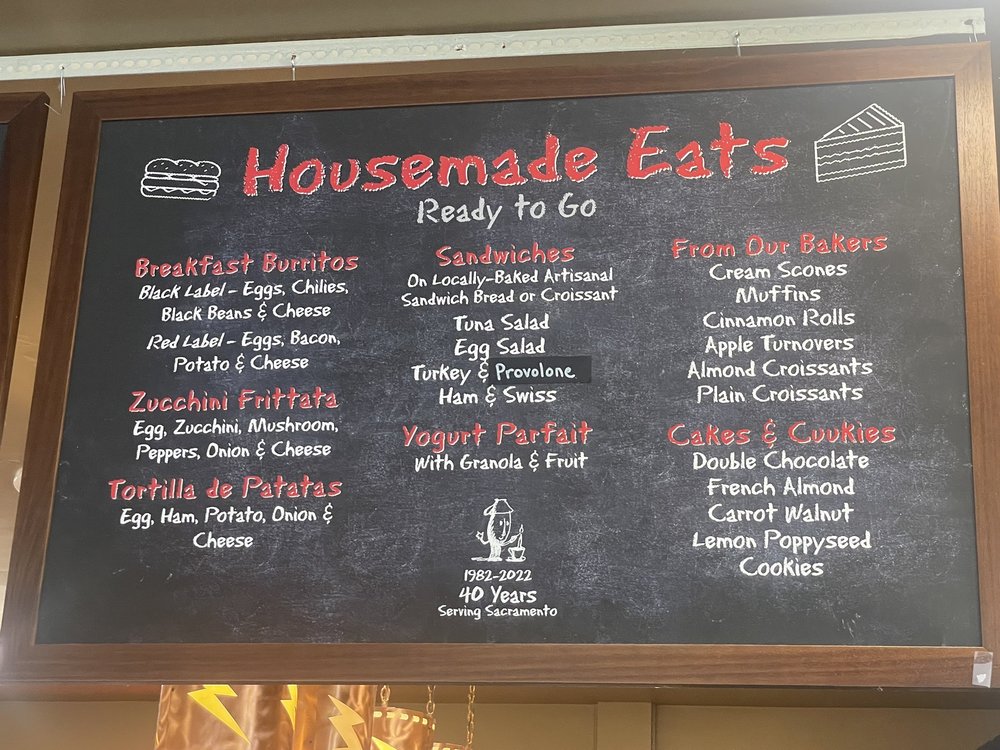 Housemade Eats
Ready to Go
Breakfast Burritos
Black Label - Eggs, Chilies,
Black Beans & Cheese
Red Label - Eggs, Bacon,
Potato & Cheese
Zucchini Frittata
Egg, Zucchini, Mushroom,
Peppers, Onion & Cheese
Tortilla de Patatas
Egg, Ham, Potato, Onion &
Cheese
Sandwiches
On Locally-Baked Artisanal
Sandwich Bread or Croissant
Tuna Salad
Egg Salad
Turkey & Provolone
Ham & Swiss
Yogurt Parfait
With Granola & Fruit
1982-2022
40 Years
Serving Sacramento
From Our Bakers
Cream Scones
Muffins
Cinnamon Rolls
Apple Turnovers
Almond Croissants
Plain Croissants
Cakes & Cuukies
Double Chocolate
French Almond
Carrot Walnut
Lemon Poppyseed
Cookies